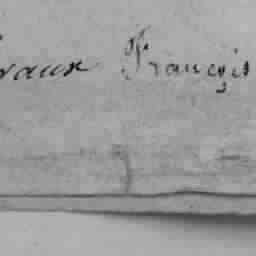 raux François